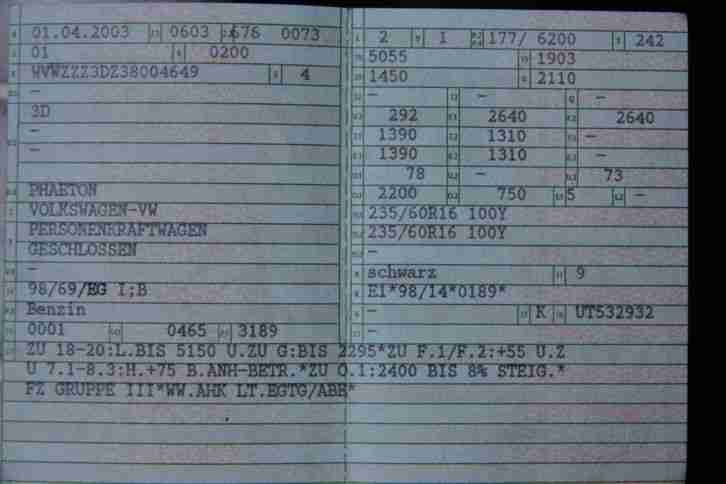 01.04.2003 0603 676 0073
01 0200
WVWZZZ3DZ38004649 4
-
3D
-
-
PHAETON
VOLKSWAGEN-VW
PERSONENKRAFTWAGEN
GESCHLOSSEN
-
98/69/EG I;B
Benzin
0001 0465 3189
2 1 177/ 6200 242
5055 1903
1450 2110
- - -
292 2640 2640
1390 1310 -
1390 1310 -
78 - 73
2200 750 5 -
235/60R16 100Y
235/60R16 100Y
-
schwarz 9
E1*98/14*0189*
- K UT532932
-
ZU 18-20:L.BIS 5150 U.ZU G:BIS 2295*ZU F.1/F.2:+55 U.Z
U 7.1-8.3:H.+75 B.ANH-BETR.*ZU O.1:2400 BIS 8% STEIG.*
FZ GRUPPE III*WW.AHK LT.EGTG/ABE*